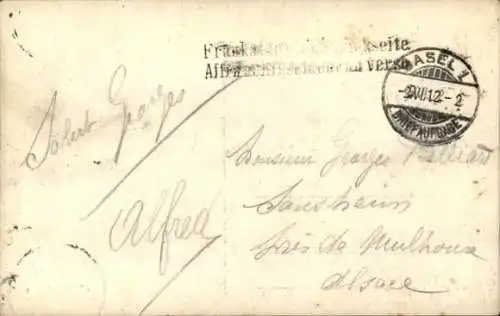 Frankatur Rückseite
Affranchissement au verso
BASEL 1
BRIEFAUFGABE
Salut Georges
Alfred
Monsieur Georges
Sausheim
près de Mulhouse
Alsace